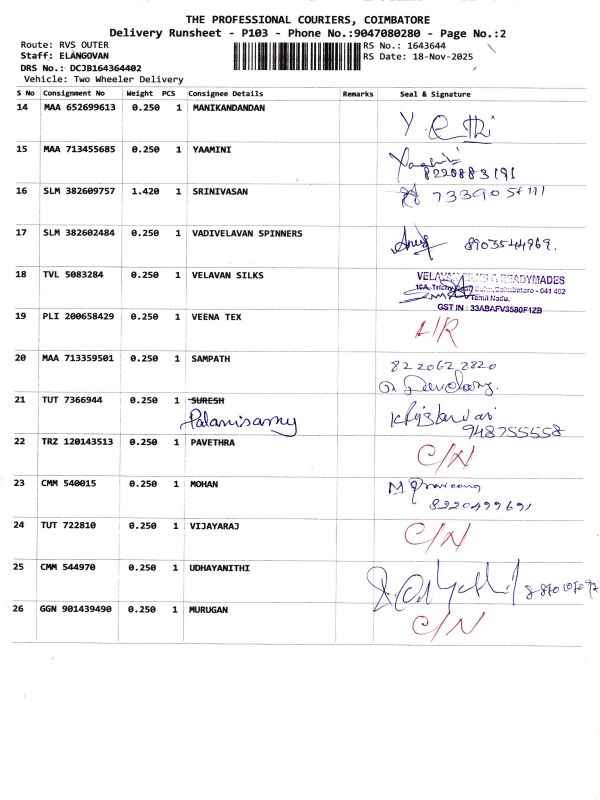 THE PROFESSIONAL COURIERS, COIMBATORE
Delivery Runsheet - P103 - Phone No.:9047080280 - Page No.:2
Route: RVS OUTER
RS No.: 1643644
Staff: ELANGOVAN
RS Date: 18-Nov-2025
DRS No.: DCJB164364402
Vehicle: Two Wheeler Delivery
S No Consignment No Weight PCS Consignee Details Remarks Seal & Signature
14 MAA 652699613 0.250 1 MANIKANDANDAN
15 MAA 713455685 0.250 1 YAAMINI
8220883191
16 SLM 382609757 1.420 1 SRINIVASAN
17 SLM 382602484 0.250 1 VADIVELAVAN SPINNERS
8903544969.
18 TVL 5083284 0.250 1 VELAVAN SILKS
READYMADES
Coimbatore - 641 402
Tamil Nadu.
GST IN : 33ABAFV3580F1ZB
19 PLI 200658429 0.250 1 VEENA TEX
20 MAA 713359501 0.250 1 SAMPATH
21 TUT 7366944 0.250 1 SURESH
Palanisamy
948755558
22 TRZ 120143513 0.250 1 PAVETHRA C/N
23 CMM 540015 0.250 1 MOHAN
8220499691
24 TUT 722810 0.250 1 VIJAYARAJ C/N
25 CMM 544970 0.250 1 UDHAYANITHI
26 GGN 901439490 0.250 1 MURUGAN C/N